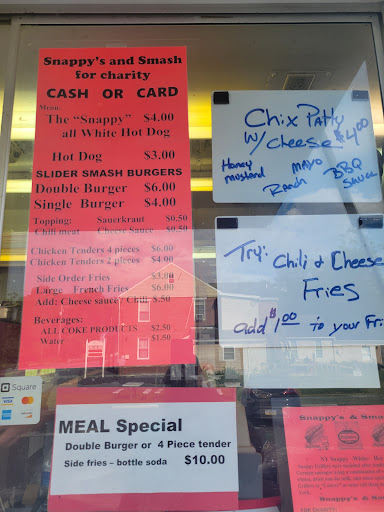 Snappy's and Smash
for charity
CASH OR CARD
Menu:
The "Snappy" $4.00
all White Hot Dog
Hot Dog $3.00
SLIDER SMASH BURGERS
Double Burger $6.00
Single Burger $4.00
Topping: Sauerkraut $0.50
Chili meat Cheese Sauce $0.50
Chicken Tenders 4 pieces $6.00
Chicken Tenders 2 pieces $4.00
Side Order Fries $3.00
Large French Fries $6.00
Add: Cheese sauce Chili $.50
Beverages:
ALL COKE PRODUCTS $2.50
Water $1.50
Chix Patty
W/ Cheese $4.00
Honey
mustard
MAYO
Ranch
BBQ
Sauce
Try: Chili & Cheese
Fries
add $1.00 to your Fri
Square
VISA
MEAL Special
Double Burger or 4 Piece tender
Side fries – bottle soda $10.00
Snappy's & Sma